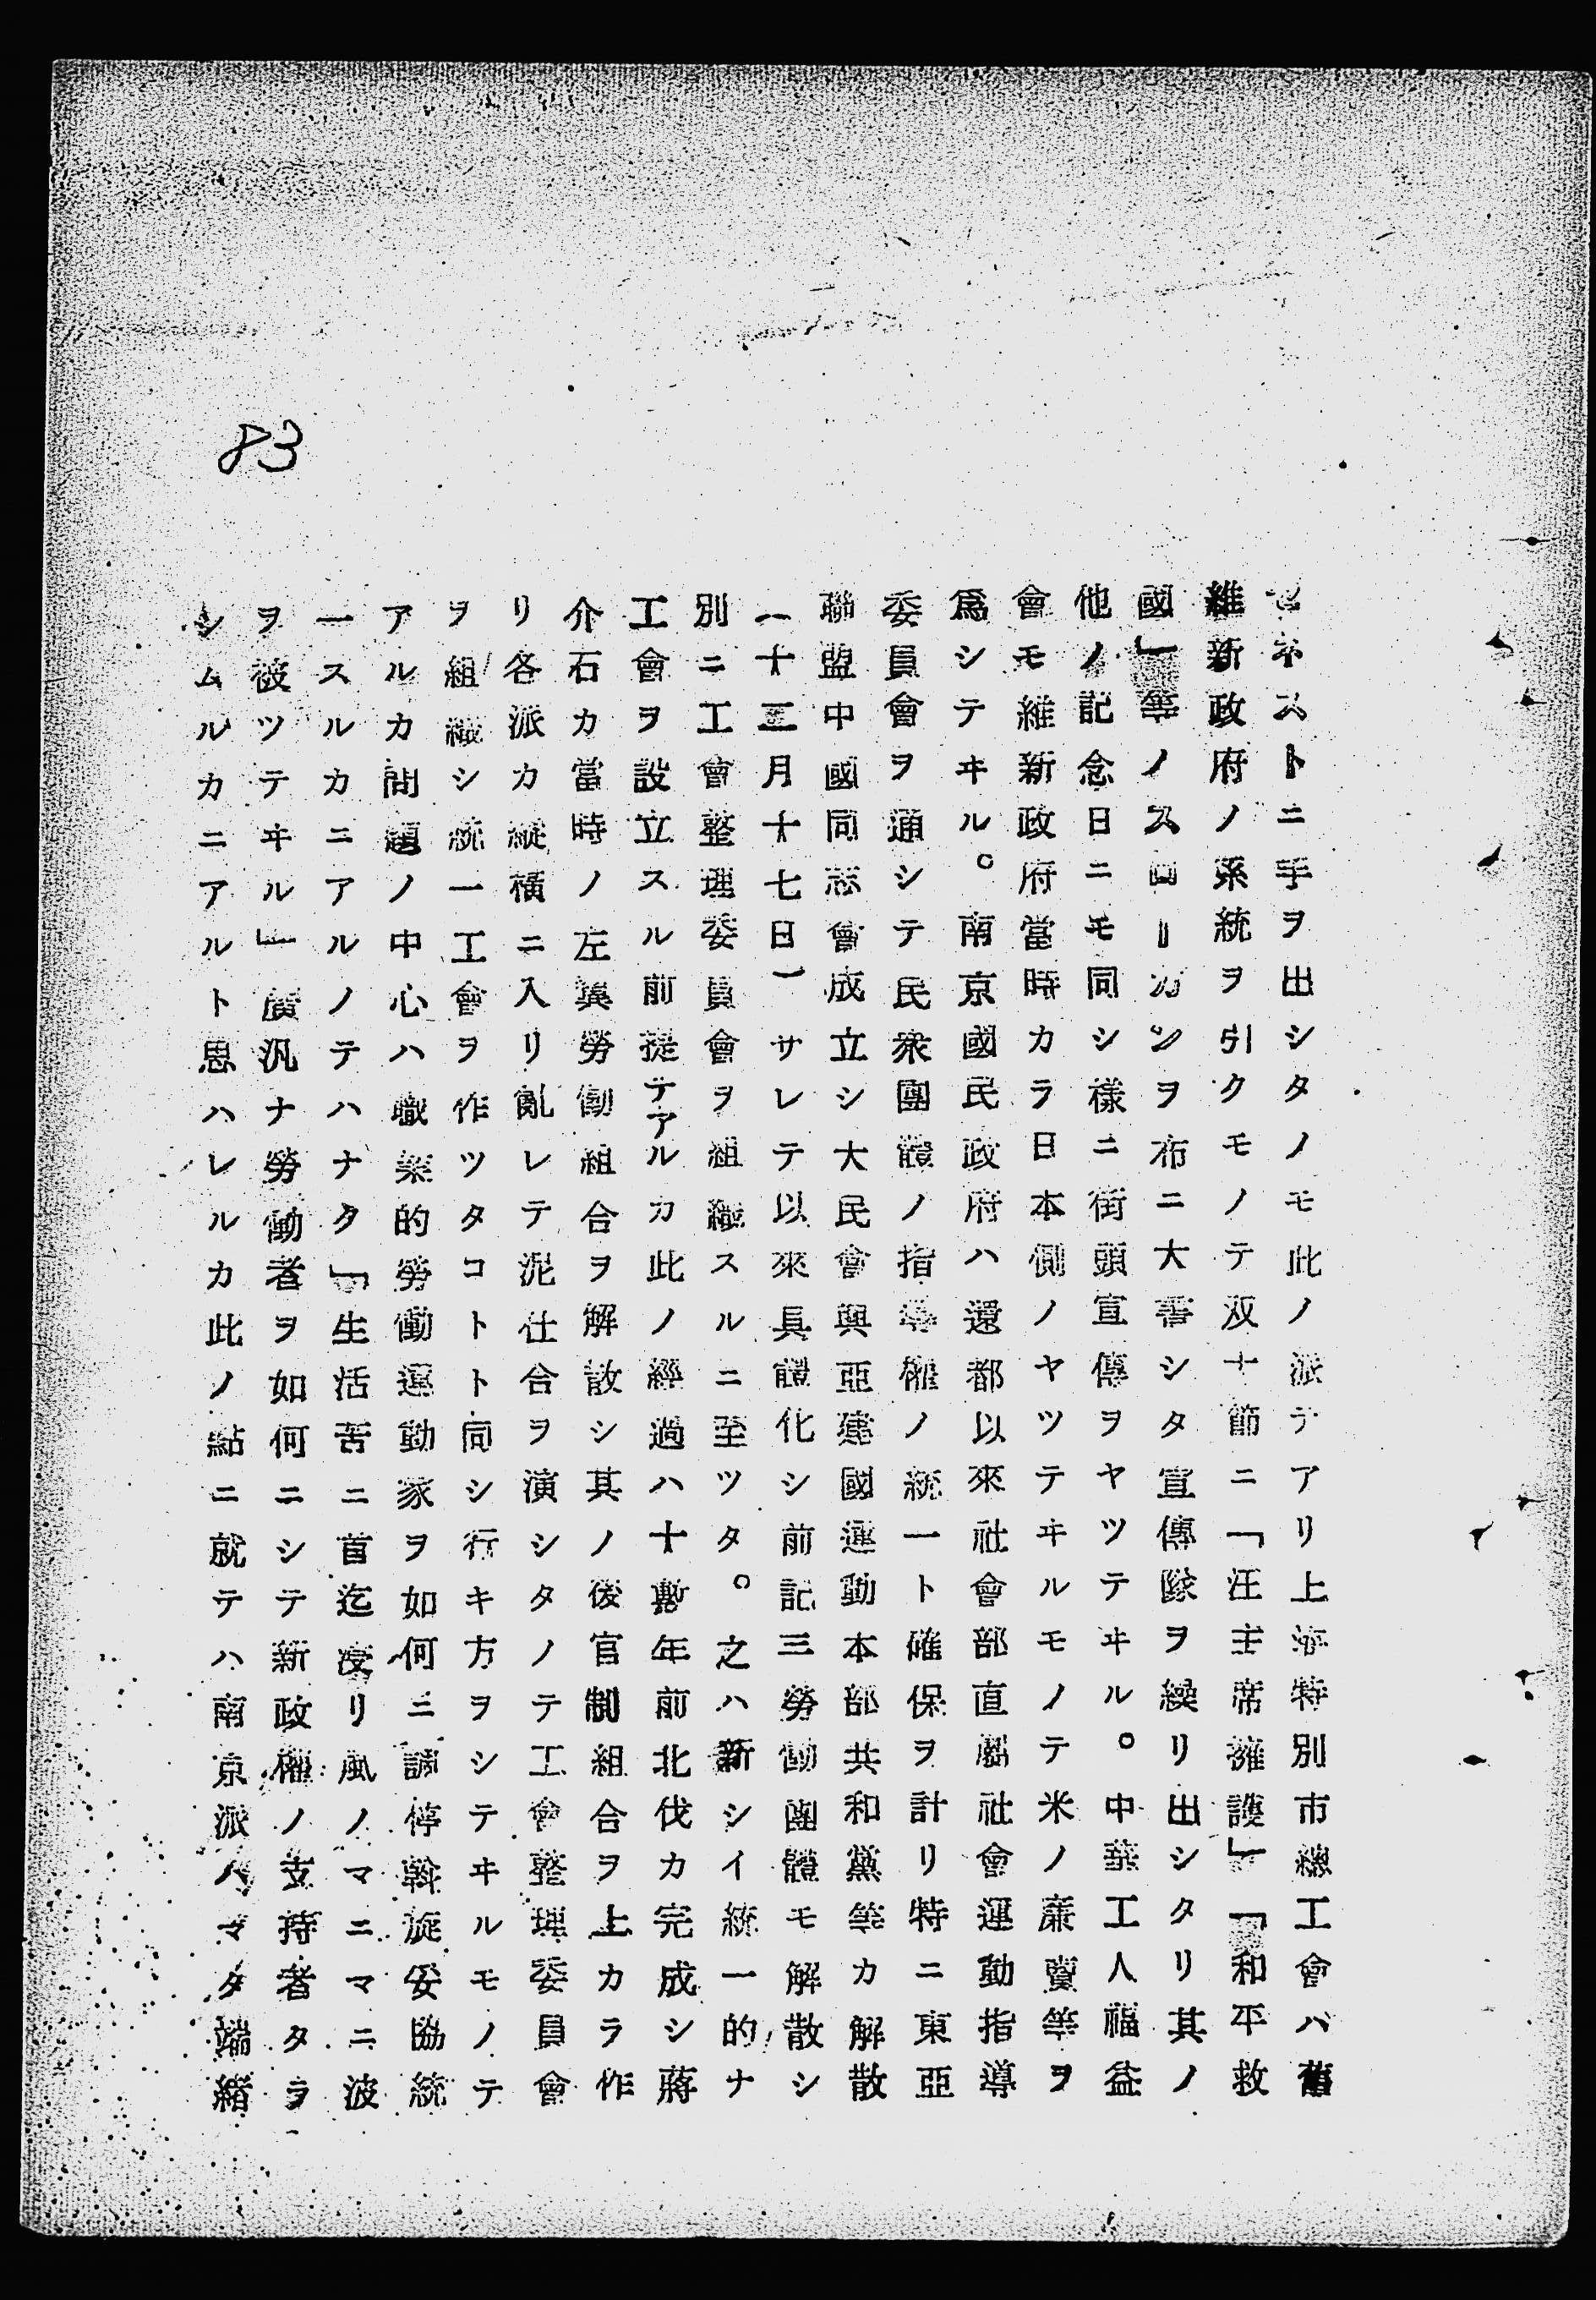 83
ストニ手ヲ出シタノモ此ノ派テアリ上海特別市總工會ハ舊
維新政府ノ系統ヲ引クモノテ双十節ニ「汪主席擁護」「和平救
國」等ノスローガンヲ布ニ大書シタ宣傳隊ヲ繰リ出シタリ其ノ
他ノ記念日ニモ同シ樣ニ街頭宣傳ヲヤツテヰル。中華工人福益
會モ維新政府當時カラ日本側ノヤツテヰルモノテ米ノ廉賣等ヲ
爲シテヰル。南京國民政府ハ還都以來社會部直屬社會運動指導
委員會ヲ通シテ民衆團體ノ指導權ノ統一ト確保ヲ計リ特ニ東亞
聯盟中國同志會成立シ大民會興亞建國運動本部共和黨等カ解散
(十二月十七日)サレテ以來具體化シ前記三勞働團體モ解散シ
別ニ工會整理委員會ヲ組織スルニ至ツタ。之ハ新シイ統一的ナ
工會ヲ設立スル前提テアルカ此ノ經過ハ十數年前北伐カ完成シ蔣
介石カ當時ノ左翼勞働組合ヲ解散シ其ノ後官制組合ヲ上カラ作
リ各派カ縱橫ニ入リ亂レテ泥仕合ヲ演シタノテ工會整理委員會
ヲ組織シ統一工會ヲ作ツタコトト同シ行キ方ヲシテヰルモノテ
アルカ問題ノ中心ハ職業的勞働運動家ヲ如何ニ調停斡旋妥協統
一スルカニアルノテハナク「生活苦ニ首迄浸リ風ノママニマニ波
ヲ彼ツテヰル」廣汎ナ勞働者ヲ如何ニシテ新政權ノ支持者タラ
シムルカニアルト思ハレルカ此ノ點ニ就テハ南京派ハマタ端緒